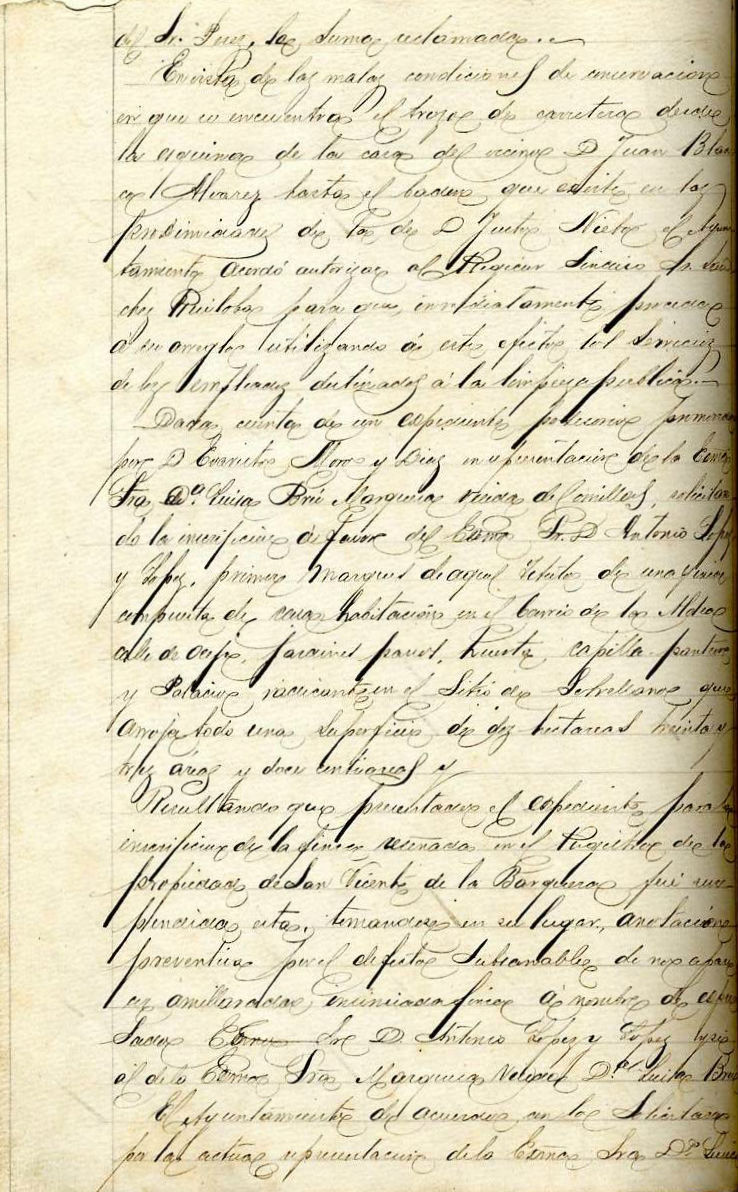 del Sr. Perez, la suma reclamada.
En vista de las malas condiciones de conservacion
en que se encuentra el trozo de carretera desde
la esquina de la casa del vecino D Juan Blan
co Alvarez hasta el badén que existe en las
proximidades de la de D Justo Nieto el Ayun
tamiento acordó autorizar al Regidor Sindico Sr. San
chez para que, inmediatamente proceda
á su arreglo utilizando á este efecto los servicios
de los empleados destinados á la limpieza publica.
Dada cuenta de un espediente posesorio promovido
por D Evaristo Moro y Diaz en representacion de la Exma
Sra Da. Luisa Bru Marquesa viuda de Comillas, solicitan
do la inscripcion á favor del Exmo Sr. D Antonio Lopez
y Lopez, primer Marques de aquel titulo de una finca
compuesta de casa habitacion en el barrio de la
calle de jardines parret, huerta, capilla panteon
y Palacio radicante en el Sitio de Sobrellano que
arroja todo una superficie de diez hectareas treinta y
tres áreas y doce centiareas y
Resultando que presentado el espediente para la
inscripcion de la finca reseñada en el Registro de la
propiedad de San Vicente de la Barquera fué sus
pendida esta, tomandose en su lugar, anotacion
preventiva por el defecto subsanable de no apare
cer amillarada finca á nombre del espre
sado Exmo Sr D. Antonio Lopez y Lopez y si
al de la Exma Sra Marquesa viuda Da Luisa Bru
El Ayuntamiento de acuerdo con lo solicitado
por la actual representacion de la Exma Sra Da Luisa